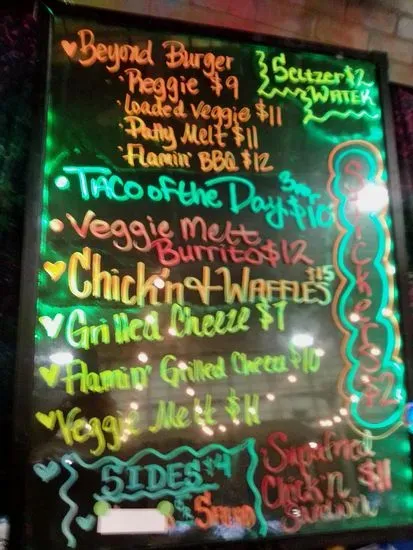 Beyond Burger
Reggie $9
Loaded Veggie $11
Patty Melt $11
Flamin' BBQ $12
Seltzer $2
Water
Taco of the Day 3 for $10
Veggie Melt
Burrito $12
Chick'n & Waffles $15
Grilled Cheeze $9
Flamin' Grilled Cheeze $10
Veggie Melt $11
Stickers $2
Sides $4
Southfried
Chick'n $11
Sandwich